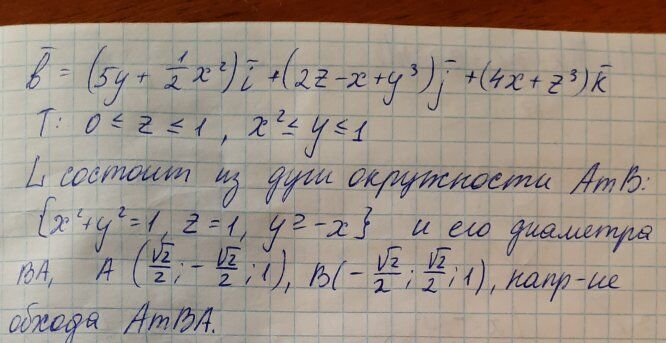 b̄ = (5y + 1/2 x²) ī + (2z - x + y³) j̄ + (4x + z³) k̄
T: 0 ≤ z ≤ 1, x² ≤ y ≤ 1
L состоит из дуги окружности AmB:
{x² + y² = 1, z = 1, y ≥ -x} и его диаметра
BA, A (√2/2; -√2/2; 1), B(-√2/2; √2/2; 1), напр-ие
обхода AmBA.